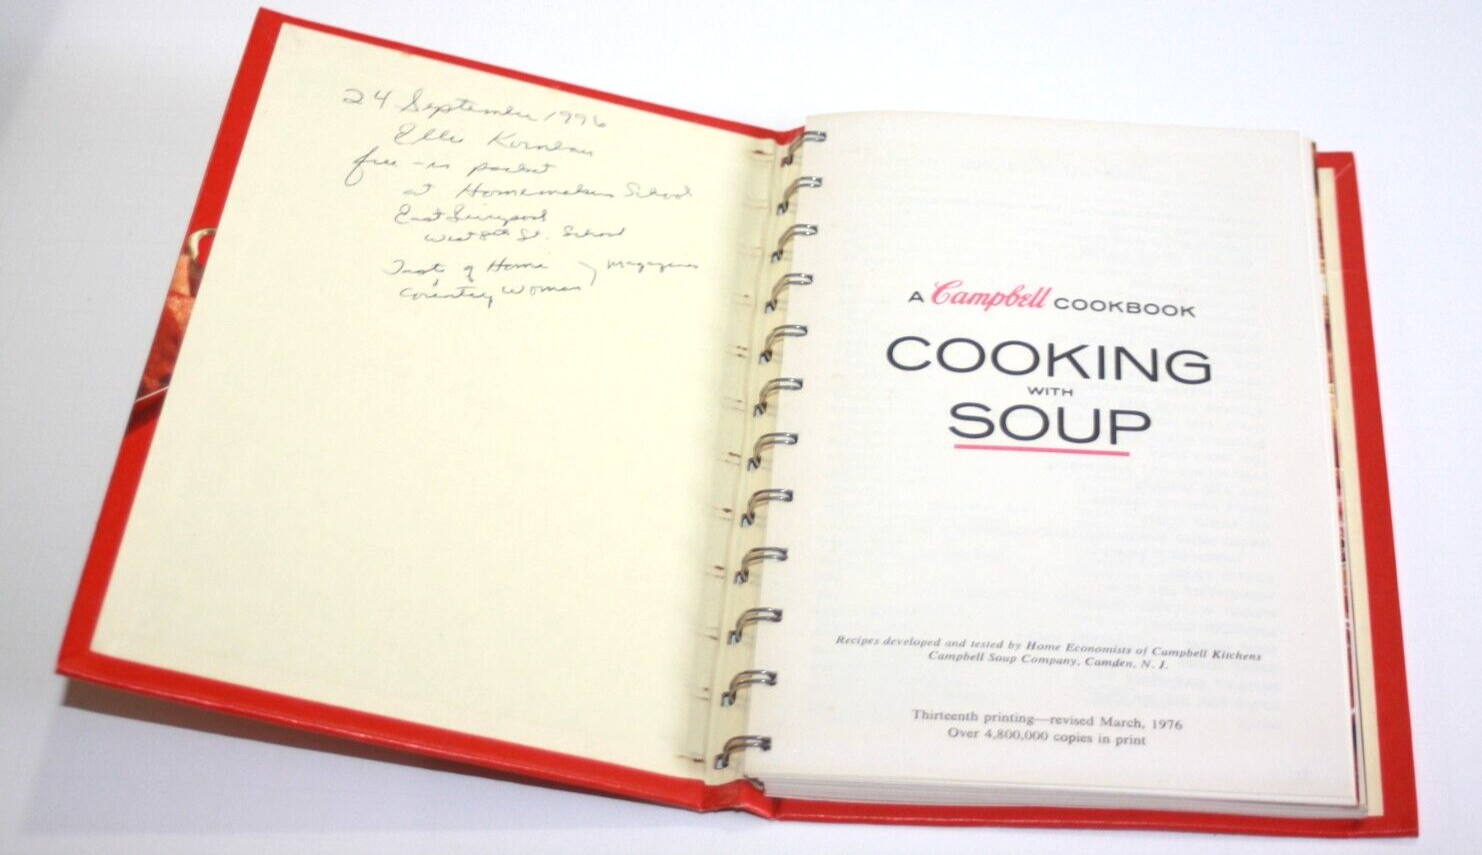 24 September 1996
Ellie
free - in packet
at Homemakers School
East Liverpool
West 8th St. School
Taste of Home } Magazines
& Country Woman
A Campbell COOKBOOK
COOKING
WITH
SOUP
Recipes developed and tested by Home Economists of Campbell Kitchens
Campbell Soup Company, Camden, N. J.
Thirteenth printing—revised March, 1976
Over 4,800,000 copies in print